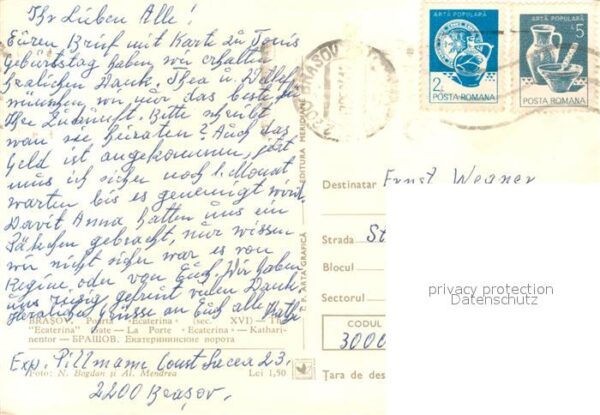 Ihr Lieben Alle!
Euren Brief mit Karte zu Tonis
Geburtstag haben wir erhalten
herzlichen Dank. Thea u.
wünschen wir nur das beste für
Ihre Zukunft. Bitte schreibt
wan sie heiraten? Auch das
Geld ist angekommen, jetzt
mus ich sicher noch 1. Monat
warten bis es genemigt wird.
Davit Anna hatten uns ein
Säkchen gebracht, nur wissen
wir nicht sicher war es von
Regine oder von Euch. Wir haben
uns riesig gefreut vielen Dank.
Herzliche Grüsse an Euch alle
BRAŞOV. Poarta „Ecaterina” (sec. XVI) — The
"Ecaterina" Gate — La Porte „Ecaterina” — Kathari-
nentor — БРАШОВ. Екатерининские ворота
Exp. Pillmann Const Lacea 23.
Foto: N. Bogdan şi Al. Mendrea Lei 1,50
2200 Braşov.
C.P. ARTA GRAFICĂ EDITURA MERIDIANE
2200 BRASOV
ARTĂ POPULARĂ
2L
POSTA ROMANA
ARTĂ POPULARĂ
5L
POSTA ROMANA
Destinatar Ernst Wegner
Strada St
Blocul
Sectorul
CODUL
3000
Ţara de des
privacy protection
Datenschutz